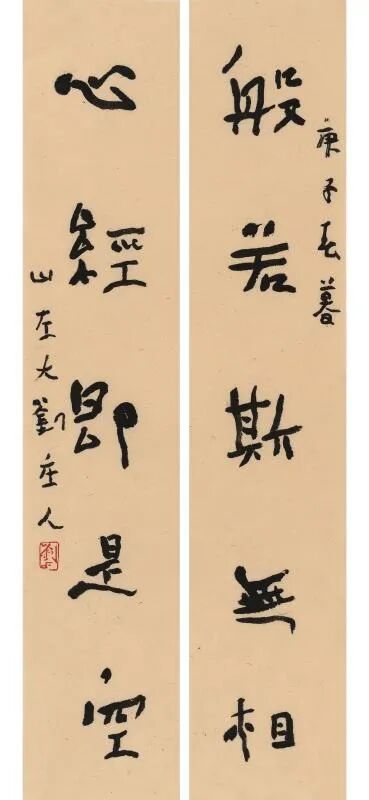 般若斯無相
庚子春暮
心經即是空
山左大劉庄人